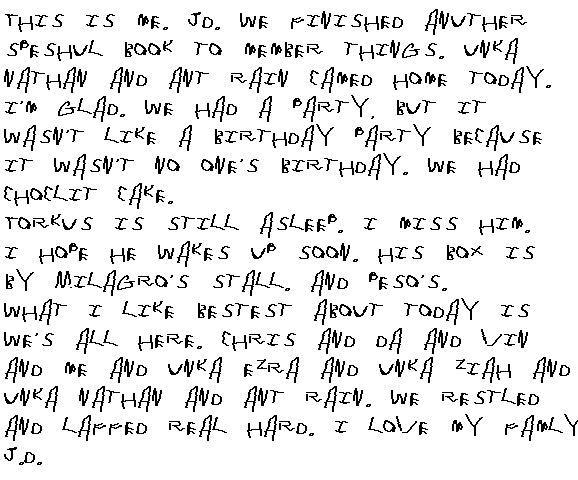 THIS IS ME. JD. WE FINISHED ANUTHER
SPESHUL BOOK TO MEMBER THINGS. UNKA
NATHAN AND ANT RAIN CAMED HOME TODAY.
I'M GLAD. WE HAD A PARTY, BUT IT
WASN'T LIKE A BIRTHDAY PARTY BECAUSE
IT WASN'T NO ONE'S BIRTHDAY. WE HAD
CHOCLIT CAKE.
TORKUS IS STILL ASLEEP. I MISS HIM.
I HOPE HE WAKES UP SOON. HIS BOX IS
BY MILAGRO'S STALL. AND PESO'S.
WHAT I LIKE BESTEST ABOUT TODAY IS
WE'S ALL HERE. CHRIS AND DA AND VIN
AND ME AND UNKA EZRA AND UNKA ZIAH AND
UNKA NATHAN AND ANT RAIN. WE RESTLED
AND LAFFED REAL HARD. I LOVE MY FAMLY
J.D.